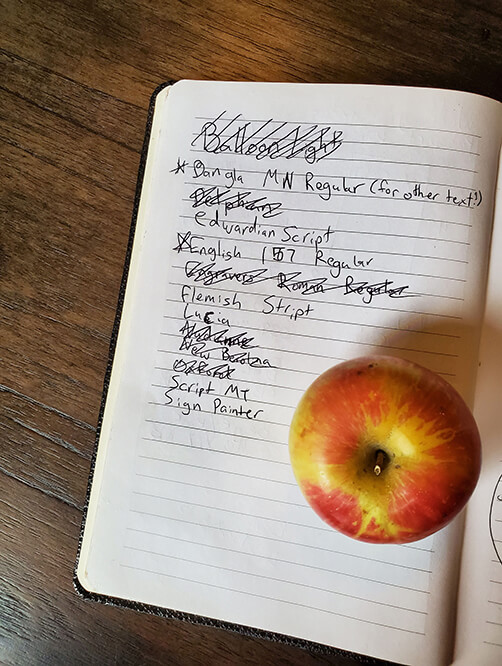 Balloon Night
* Bangla MN Regular (for other text?)
Edwardian Script
* English 157 Regular
Engravers Roman Regular
Flemish Stript
Lucia
New Berolina
Script MT
Sign Painter